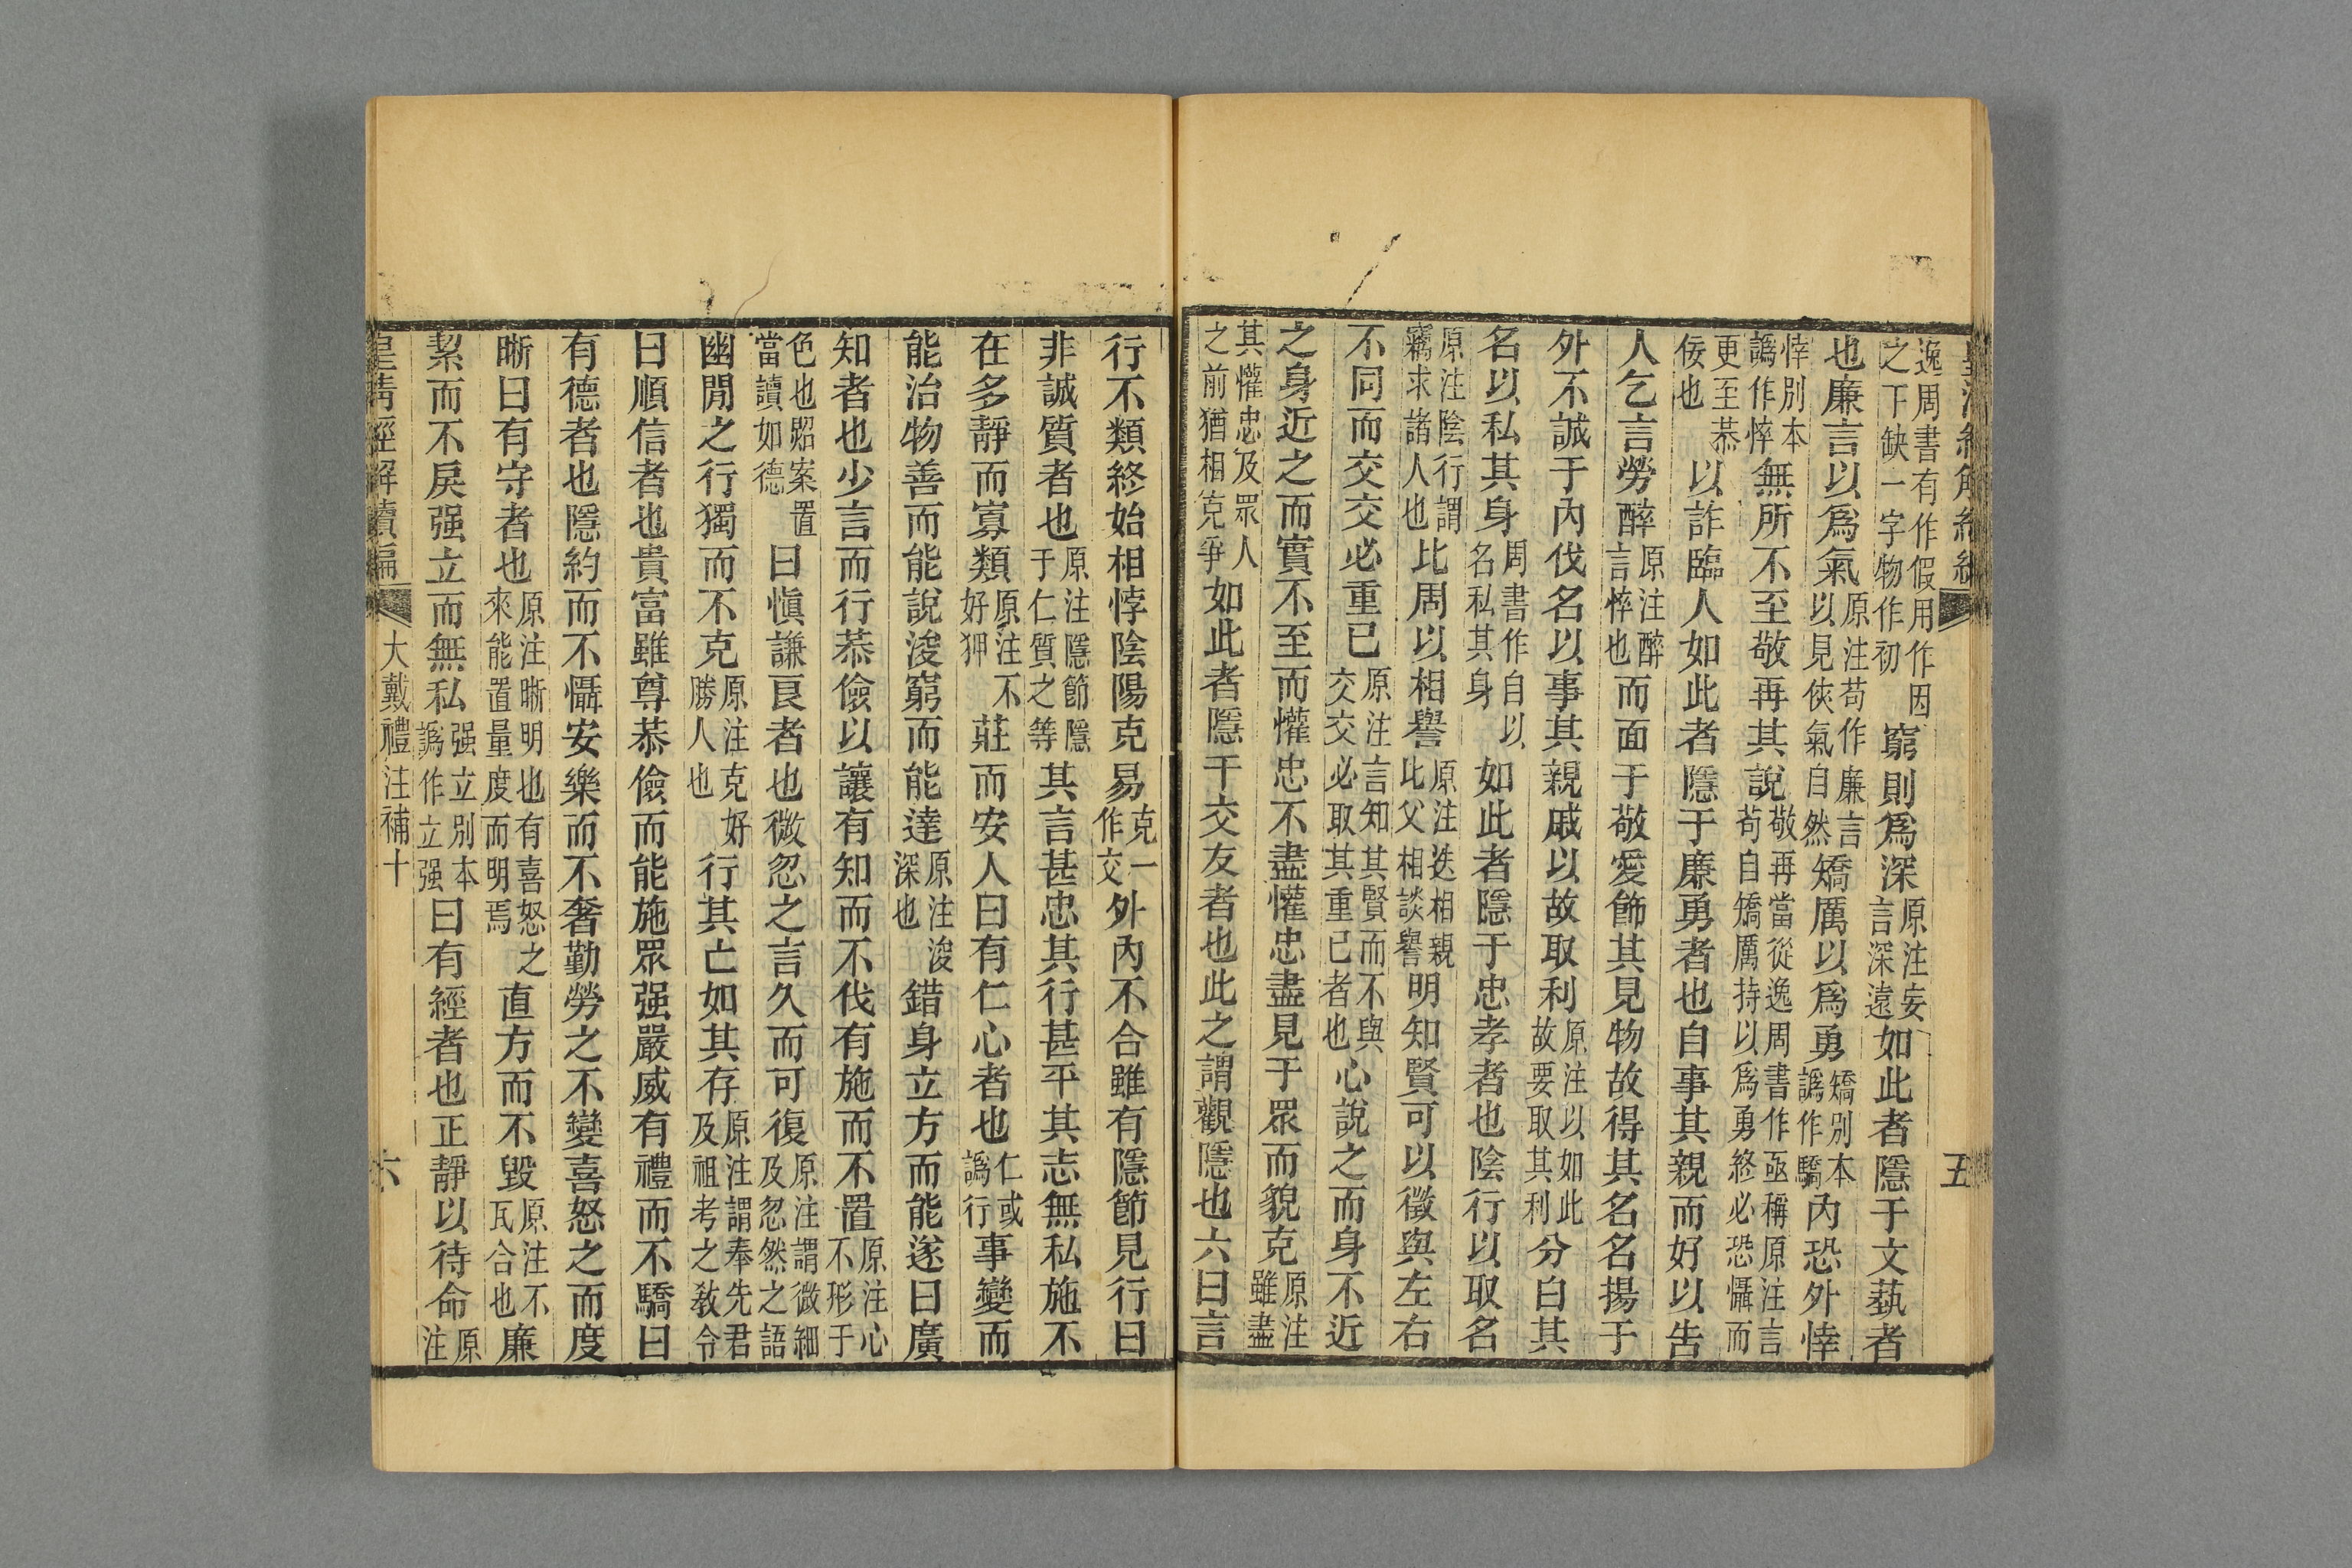 逸周書有作假用作因之下缺一字物作初窮則爲深原注安言深遠如此者隱于文藝者
也廉言以爲氣原注苟作廉言以見俠氣自然矯厲以爲勇矯別本譌作驕內恐外悻
悻別本譌作悴無所不至敬再其說敬再當從逸周書作亟稱原注言苟自矯厲持以爲勇終必恐懾而
更至恭佞也以詐臨人如此者隱于廉勇者也自事其親而好以告
人乞言勞醉原注醉言悴也而面于敬愛飾其見物故得其名名揚于
外不誠于內伐名以事其親戚以故取利原注以如此故要取其利分白其
名以私其身周書作自以名私其身如此者隱于忠孝者也陰行以取名
原注陰行謂竊求諸人也比周以相譽原注迭相親比父相談譽明知賢可以徵與左右
不同而交交必重已原注言知其賢而不與交交必取其重已者也心說之而身不近
之身近之而實不至而懽忠不盡懽忠盡見于眾而貌克原注雖盡
其懽忠及眾人之前猶相克爭如此者隱于交友者也此之謂觀隱也六曰言
五
行不類終始相悖陰陽克易克一作交外內不合雖有隱節見行曰
非誠質者也原注隱節隱于仁質之等其言甚忠其行甚平其志無私施不
在多靜而寡類原注不好狎莊而安人曰有仁心者也仁或譌行事變而
能治物善而能說浚窮而能達原注浚深也錯身立方而能遂曰廣
知者也少言而行恭儉以讓有知而不伐有施而不置原注心不形于
色也昭案置當讀如德曰愼謙良者也微忽之言久而可復原注謂微細及忽然之語
幽閒之行獨而不克原注克好勝人也行其亡如其存原注謂奉先君及祖考之敎令
曰順信者也貴富雖尊恭儉而能施眾强嚴威有禮而不驕曰
有德者也隱約而不懾安樂而不奢勤勞之不變喜怒之而度
晰曰有守者也原注晰明也有喜怒之來能置量度而明焉直方而不毀原注不瓦合也廉
絜而不戾强立而無私强立別本譌作立强曰有經者也正靜以待命原注
皇清經解續編
大戴禮注補十
六